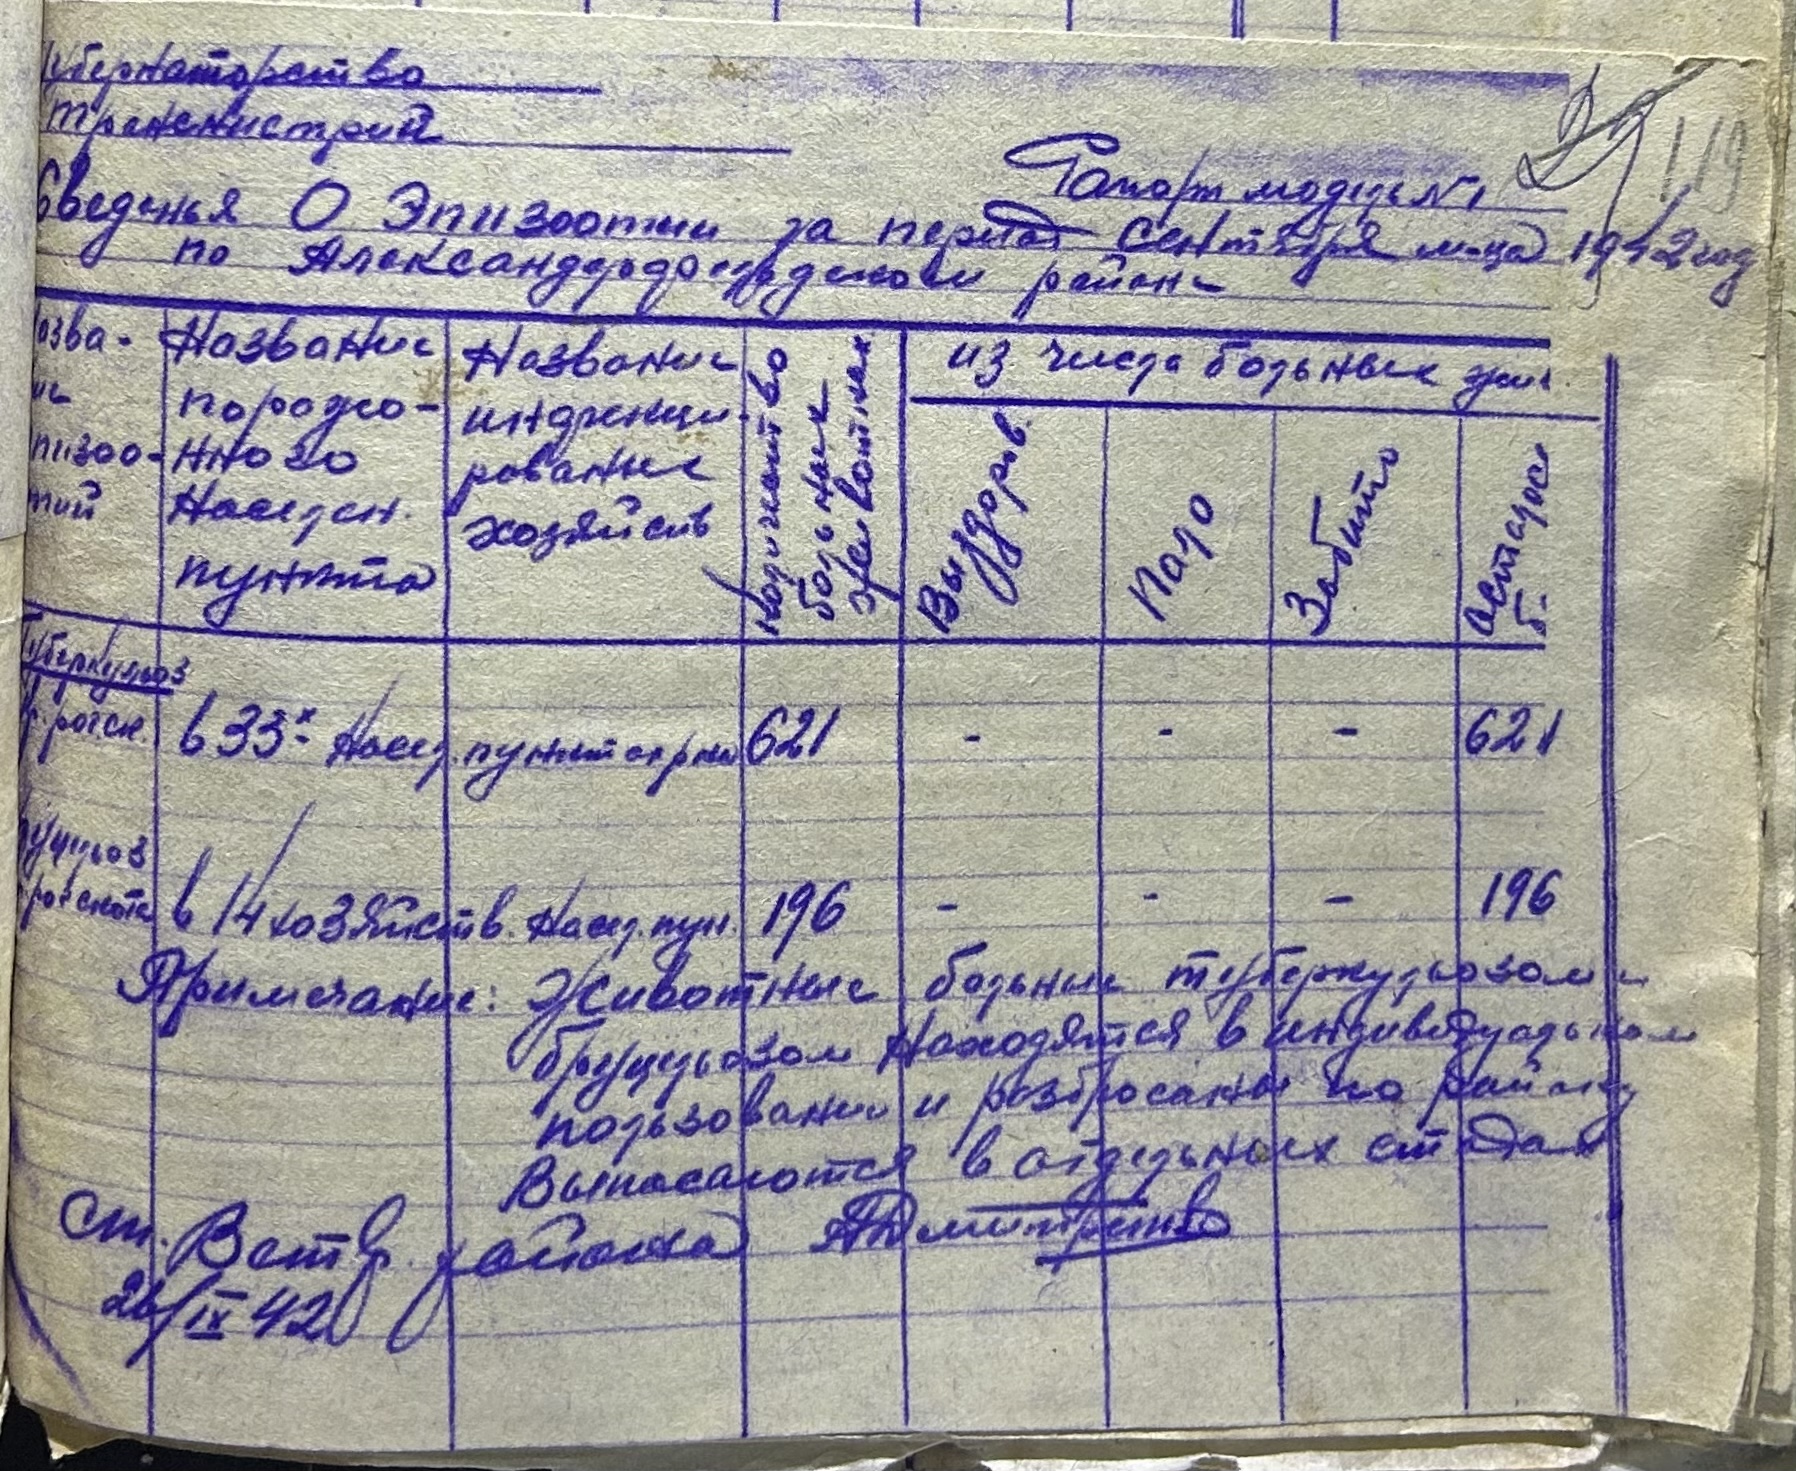 убернаторство
Транснистрий
Рапорт модель №1
119
Сведенья О Эпизоотии за период Сентября м-ца 1942 год
по Александерфельдском районе
Название пораженного Населен. пункта
Название инфекции
рование хозяйств
Количество больных животных
из числа больных жив.
Выздоров.
Пало
Забито
осталось б.
Туберкульоз
кр. рогск. в 33х насел. пунктах рай 621 - - - 621
руцильоз
рог скота в 14 хозяйств. Насел. пун. 196 - - - 196
Примечание: Животные больные туберкульозом и
бруцельозом Находятся в индиведуальном
пользовании и розбросаны по району
Выпасаются в отдельных стадах
Ст. Ветвр. района АДмитренко
26/IX 42